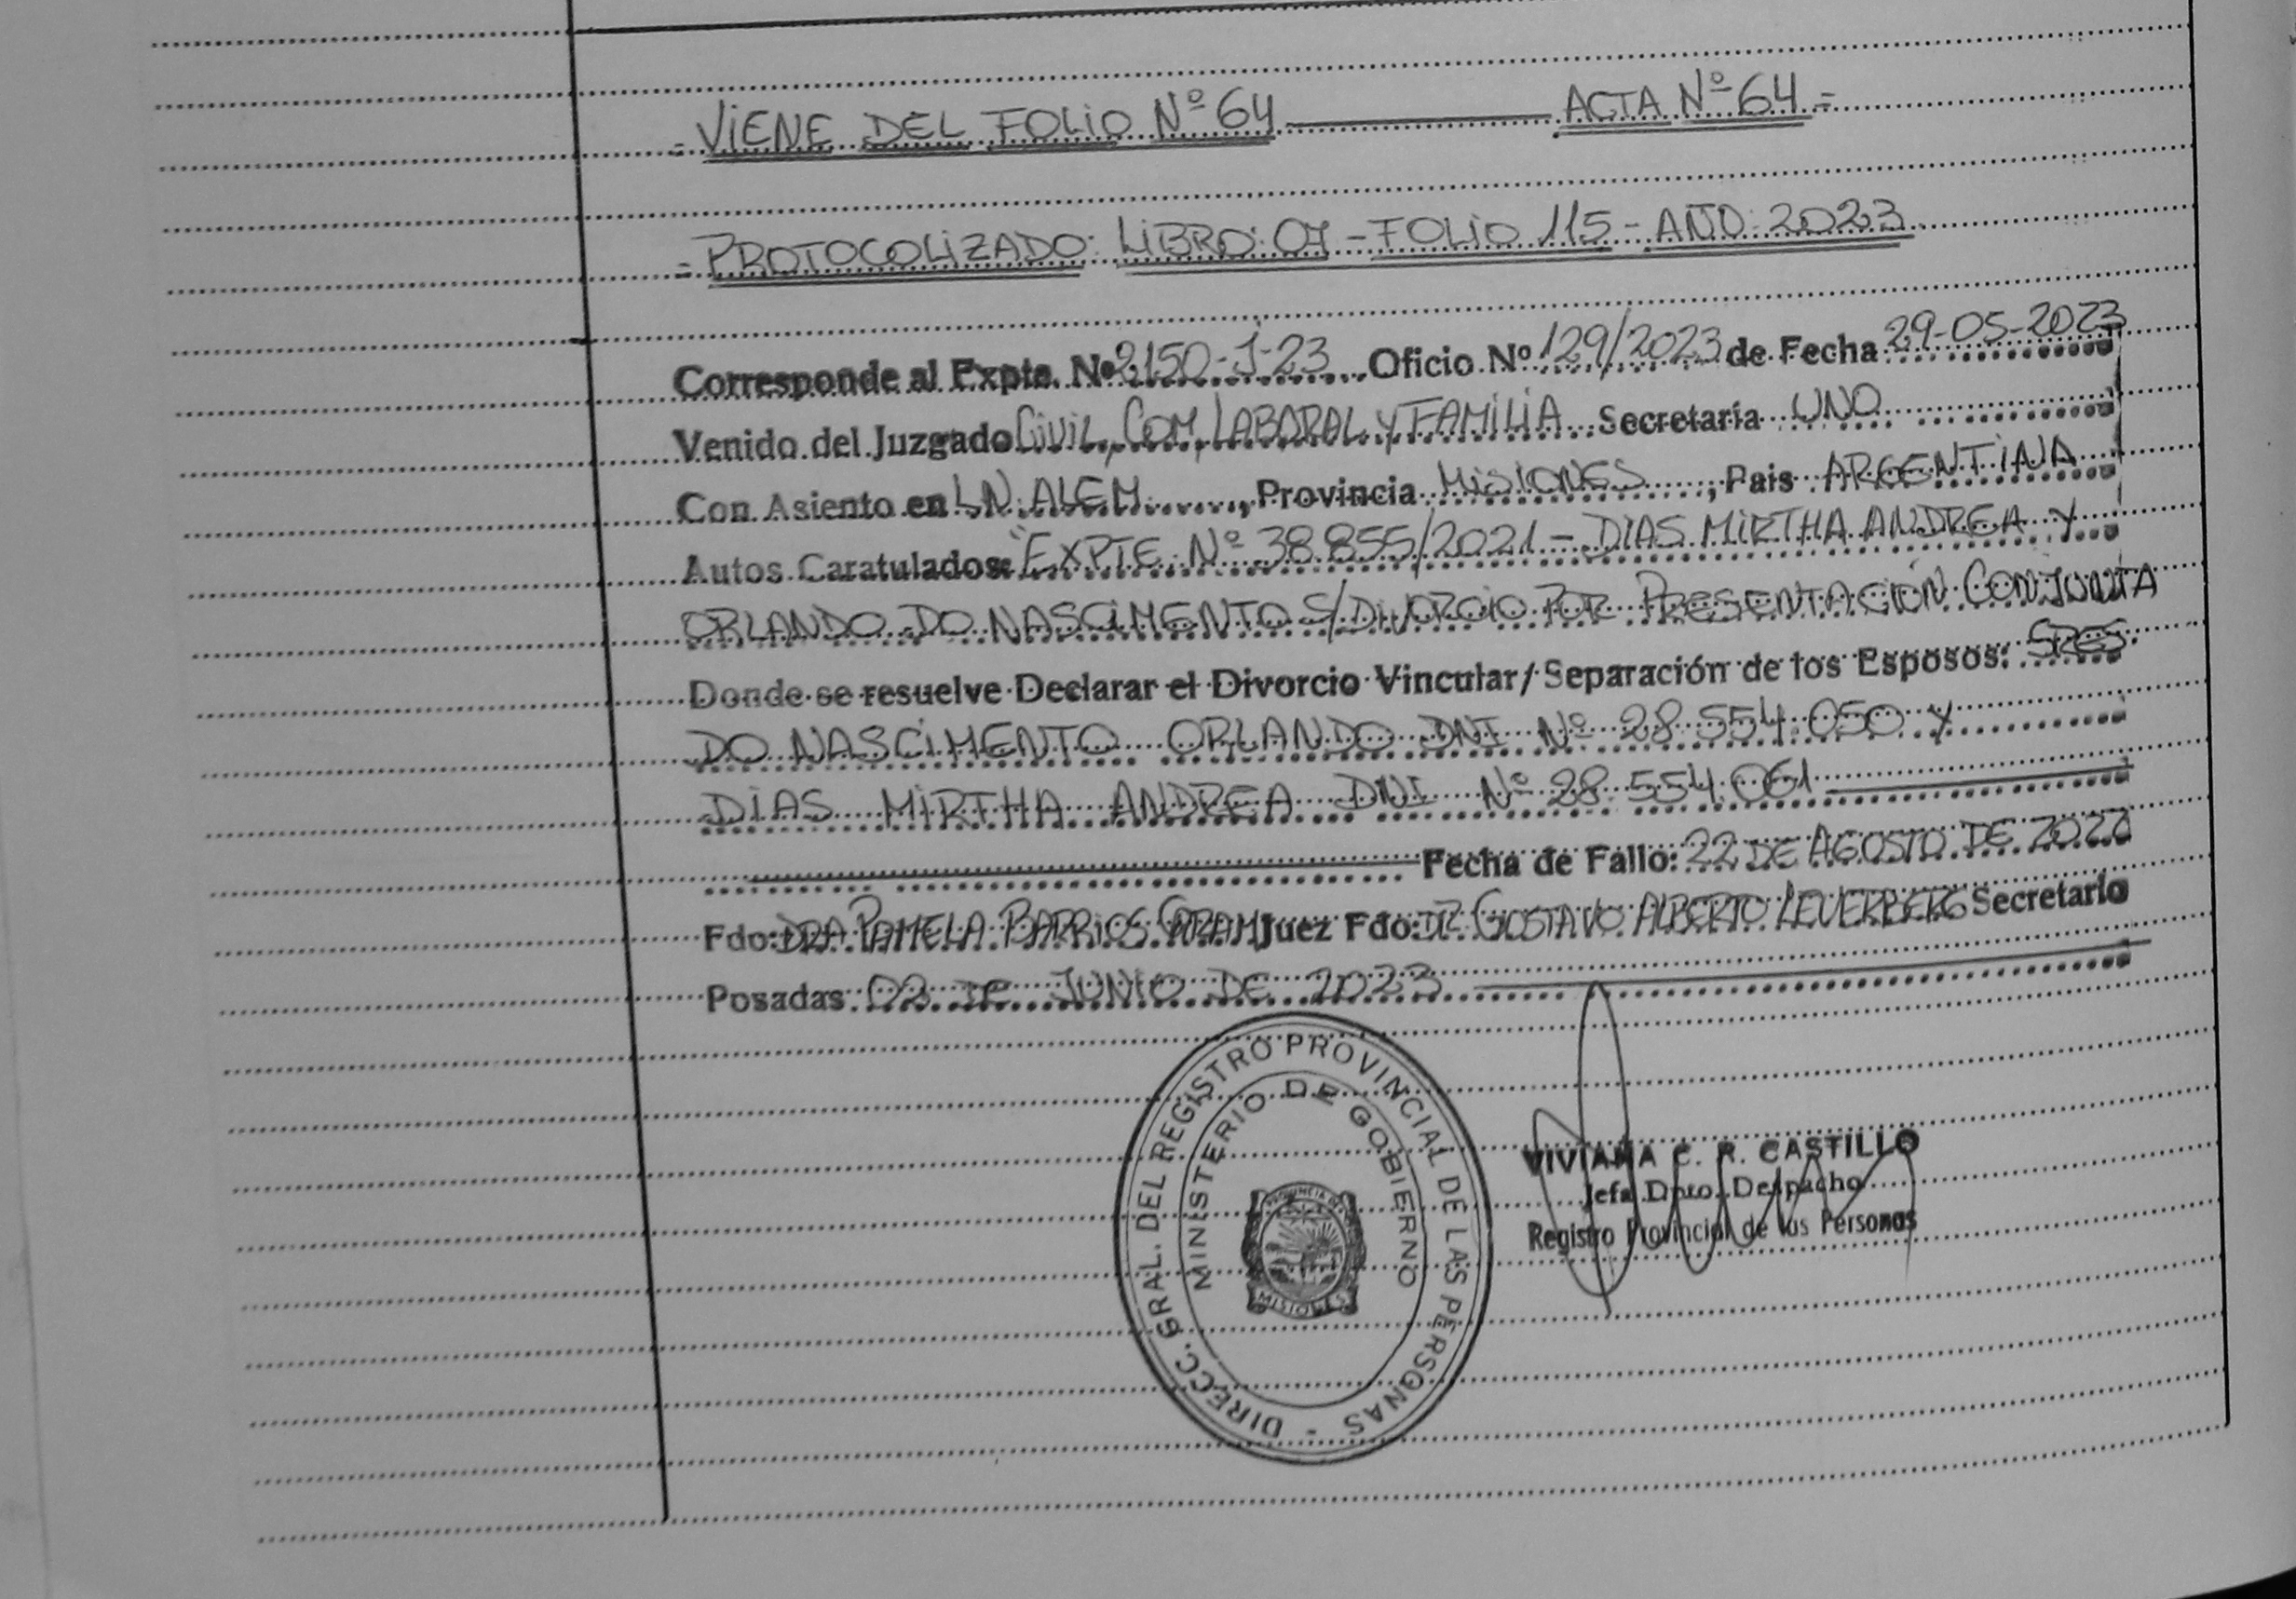 = VIENE DEL FOLIO Nº 64 ACTA Nº 64 =
= PROTOCOLIZADO: LIBRO: 07 - FOLIO 115 - AÑO: 2023
Corresponde al Expte. Nº 2150-J-23 Oficio Nº 129/2023 de Fecha 29-05-2023
Venido del Juzgado CIVIL, COM, LABORAL Y FAMILIA Secretaría UNO
Con Asiento en L.N. ALEM, Provincia MISIONES, Pais ARGENTINA
Autos Caratulados: "EXPTE Nº 38.855/2021 - DIAS MIRTHA ANDREA Y
ORLANDO DO NASCIMENTO S/DIVORCIO POR PRESENTACIÓN CONJUNTA
Donde se resuelve Declarar el Divorcio Vincular/Separación de los Esposos: SRES.
DO NASCIMENTO ORLANDO DNI Nº 28.554.050 Y
DIAS MIRTHA ANDREA DNI Nº 28.554.061
Fecha de Fallo: 22 DE AGOSTO DE 2022
Fdo: DRA. PAMELA BARRIOS Juez Fdo: DR. GUSTAVO ALBERTO LEVERBERG Secretario
Posadas 02 DE JUNIO DE 2023
DIRECC. GRAL. DEL REGISTRO PROVINCIAL DE LAS PERSONAS -
MINISTERIO DE GOBIERNO
PROVINCIA DE
MISIONES
VIVIANA C. R. CASTILLO
Jefa Dpto. Despacho
Registro Provincial de las Personas